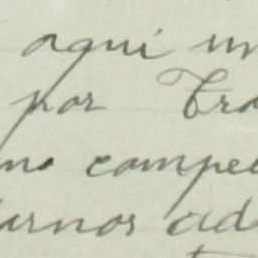 aqui un
por Tra
mo compe
arnos ad